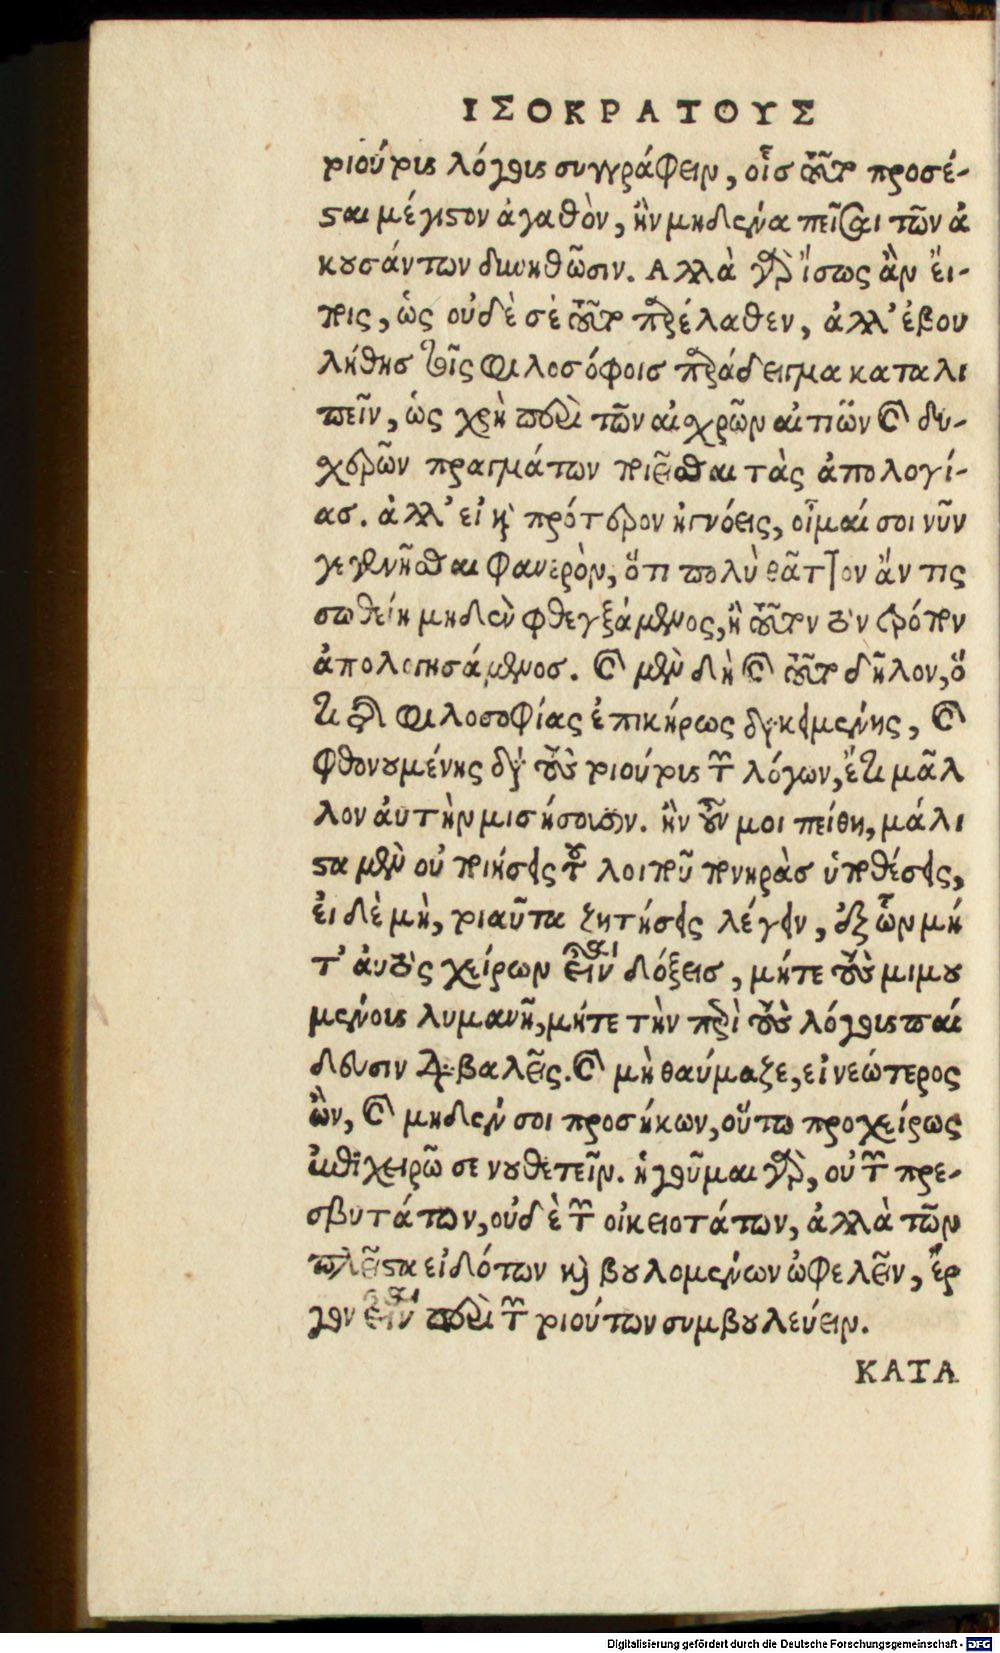 ΙΣΟΚΡΑΤΟΥΣ
τοιούτοις λόγοις συγγράφειν, οἷς τοῦτο προσέ-
σται μέγιστον ἀγαθὸν, ἢν μηδένα πεῖσαι τῶν ἀ
κουσάντων δυνηθῶσιν. Αλλὰ γὰρ ἴσως ἂν εἴ-
ποις, ὡς οὐδὲ σὲ τοῦτο παρέλαθεν, ἀλλ' ἐβου
λήθης τοῖς φιλοσόφοις παράδειγμα καταλι
πεῖν, ὡς χρὴ περὶ τῶν αἰχρῶν αἰτιῶν καὶ δυ-
χερῶν πραγμάτων ποιεῖσθαι τὰς ἀπολογί-
ας. ἀλλ' εἰ καὶ πρότερον ἠγνόεις, οἶμαί σοι νῦν
γεγενῆσθαι φανερὸν, ὅτι πολὺ θᾶττον ἄν τις
σωθείη μηδὲν φθεγξάμενος, ἢ τοῦτον τὸν τρόπον
ἀπολογησάμενος. καὶ μὲν δὴ καὶ τοῦτο δῆλον, ὅ
τι τῆς φιλοσοφίας ἐπικήρως διακειμένης, καὶ
φθονουμένης διὰ τοὺς τοιούτοις τῶν λόγων, ἔτι μᾶλ
λον αὐτὴν μισήσουσιν. ἢν οὖν μοι πείθῃ, μάλι
στα μὲν οὐ ποιήσεις τοῦ λοιποῦ πονηρὰς ὑποθέσεις,
εἰ δὲ μὴ, τοιαῦτα ζητήσεις λέγειν, ἐξ ὧν μή
τ' αὐτὸς χείρων εἶναι δόξεις, μήτε τοὺς μιμου
μένοις λυμανῇ, μήτε τὴν περὶ τοὺς λόγοις παί
δευσιν διαβαλεῖς. καὶ μὴ θαύμαζε, εἰ νεώτερος
ὢν, καὶ μηδέν σοι προσήκων, οὕτω προχείρως
ἐπιχειρῶ σε νουθετεῖν. ἡγοῦμαι γὰρ, οὐ τῶν πρε-
σβυτάτων, οὐδὲ τῶν οἰκειοτάτων, ἀλλὰ τῶν
πλεῖστα εἰδότων καὶ βουλομένων ὠφελεῖν, ἔρ
γον εἶναι περὶ τῶν τοιούτων συμβουλεύειν.
ΚΑΤΑ
Digitalisierung gefördert durch die Deutsche Forschungsgemeinschaft - DFG